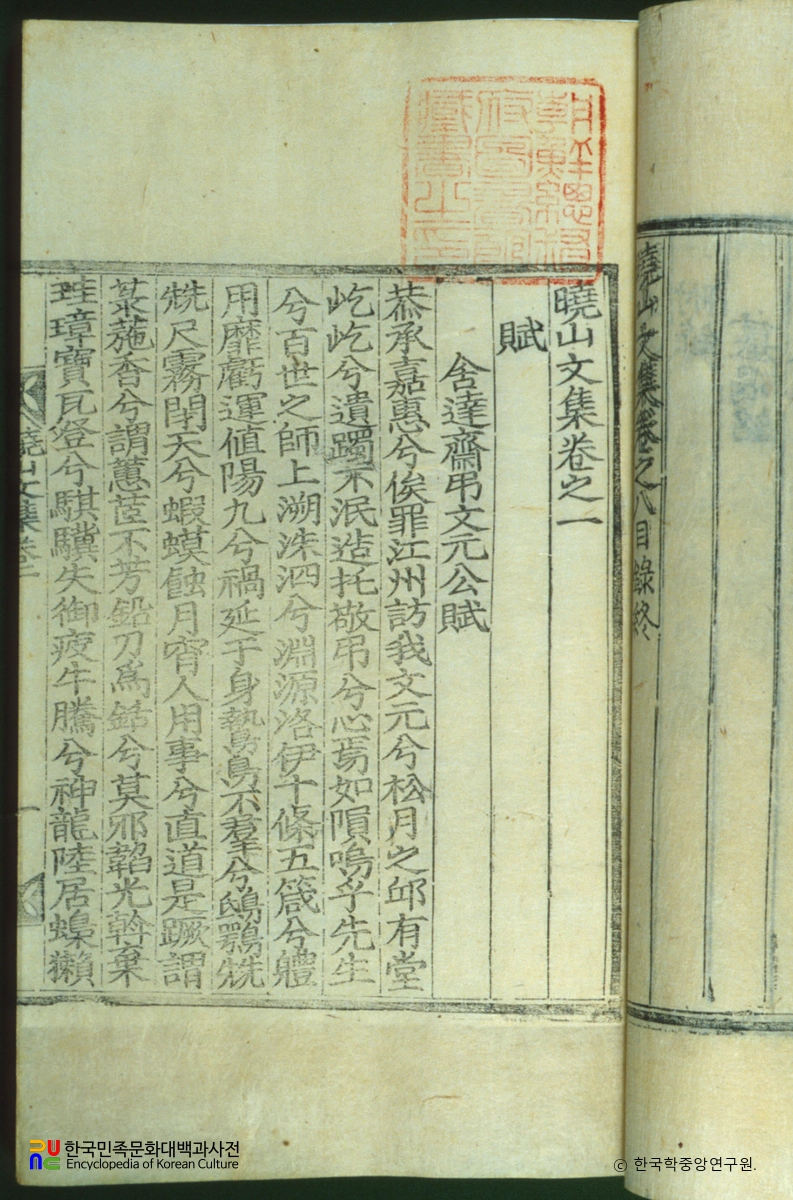 曉山文集卷之八目錄終
朝鮮總督
府圖書館
藏書之印
曉山文集卷之一
賦
舍達齋弔文元公賦
恭承嘉惠兮俟罪江州訪我文元兮松月之邱有堂
屹屹兮遺躅不泯造托敬弔兮心焉如隕嗚乎先生
兮百世之師上溯洙泗兮淵源洛伊十條五箴兮體
用靡虧運値陽九兮禍延于身鷙鳥不羣兮鴟鶚兟
兟尺霧閉天兮蝦蟆蝕月宵人用事兮直道是蹶謂
菉葹香兮謂蕙茝不芳鉛刀爲銛兮莫邪韜光斡棄
珪璋寶瓦登兮騏驥失御疲牛騰兮神龍陸居蟂獺
曉山文集卷一
한국민족문화대백과사전
Encyclopedia of Korean Culture
© 한국학중앙연구원.